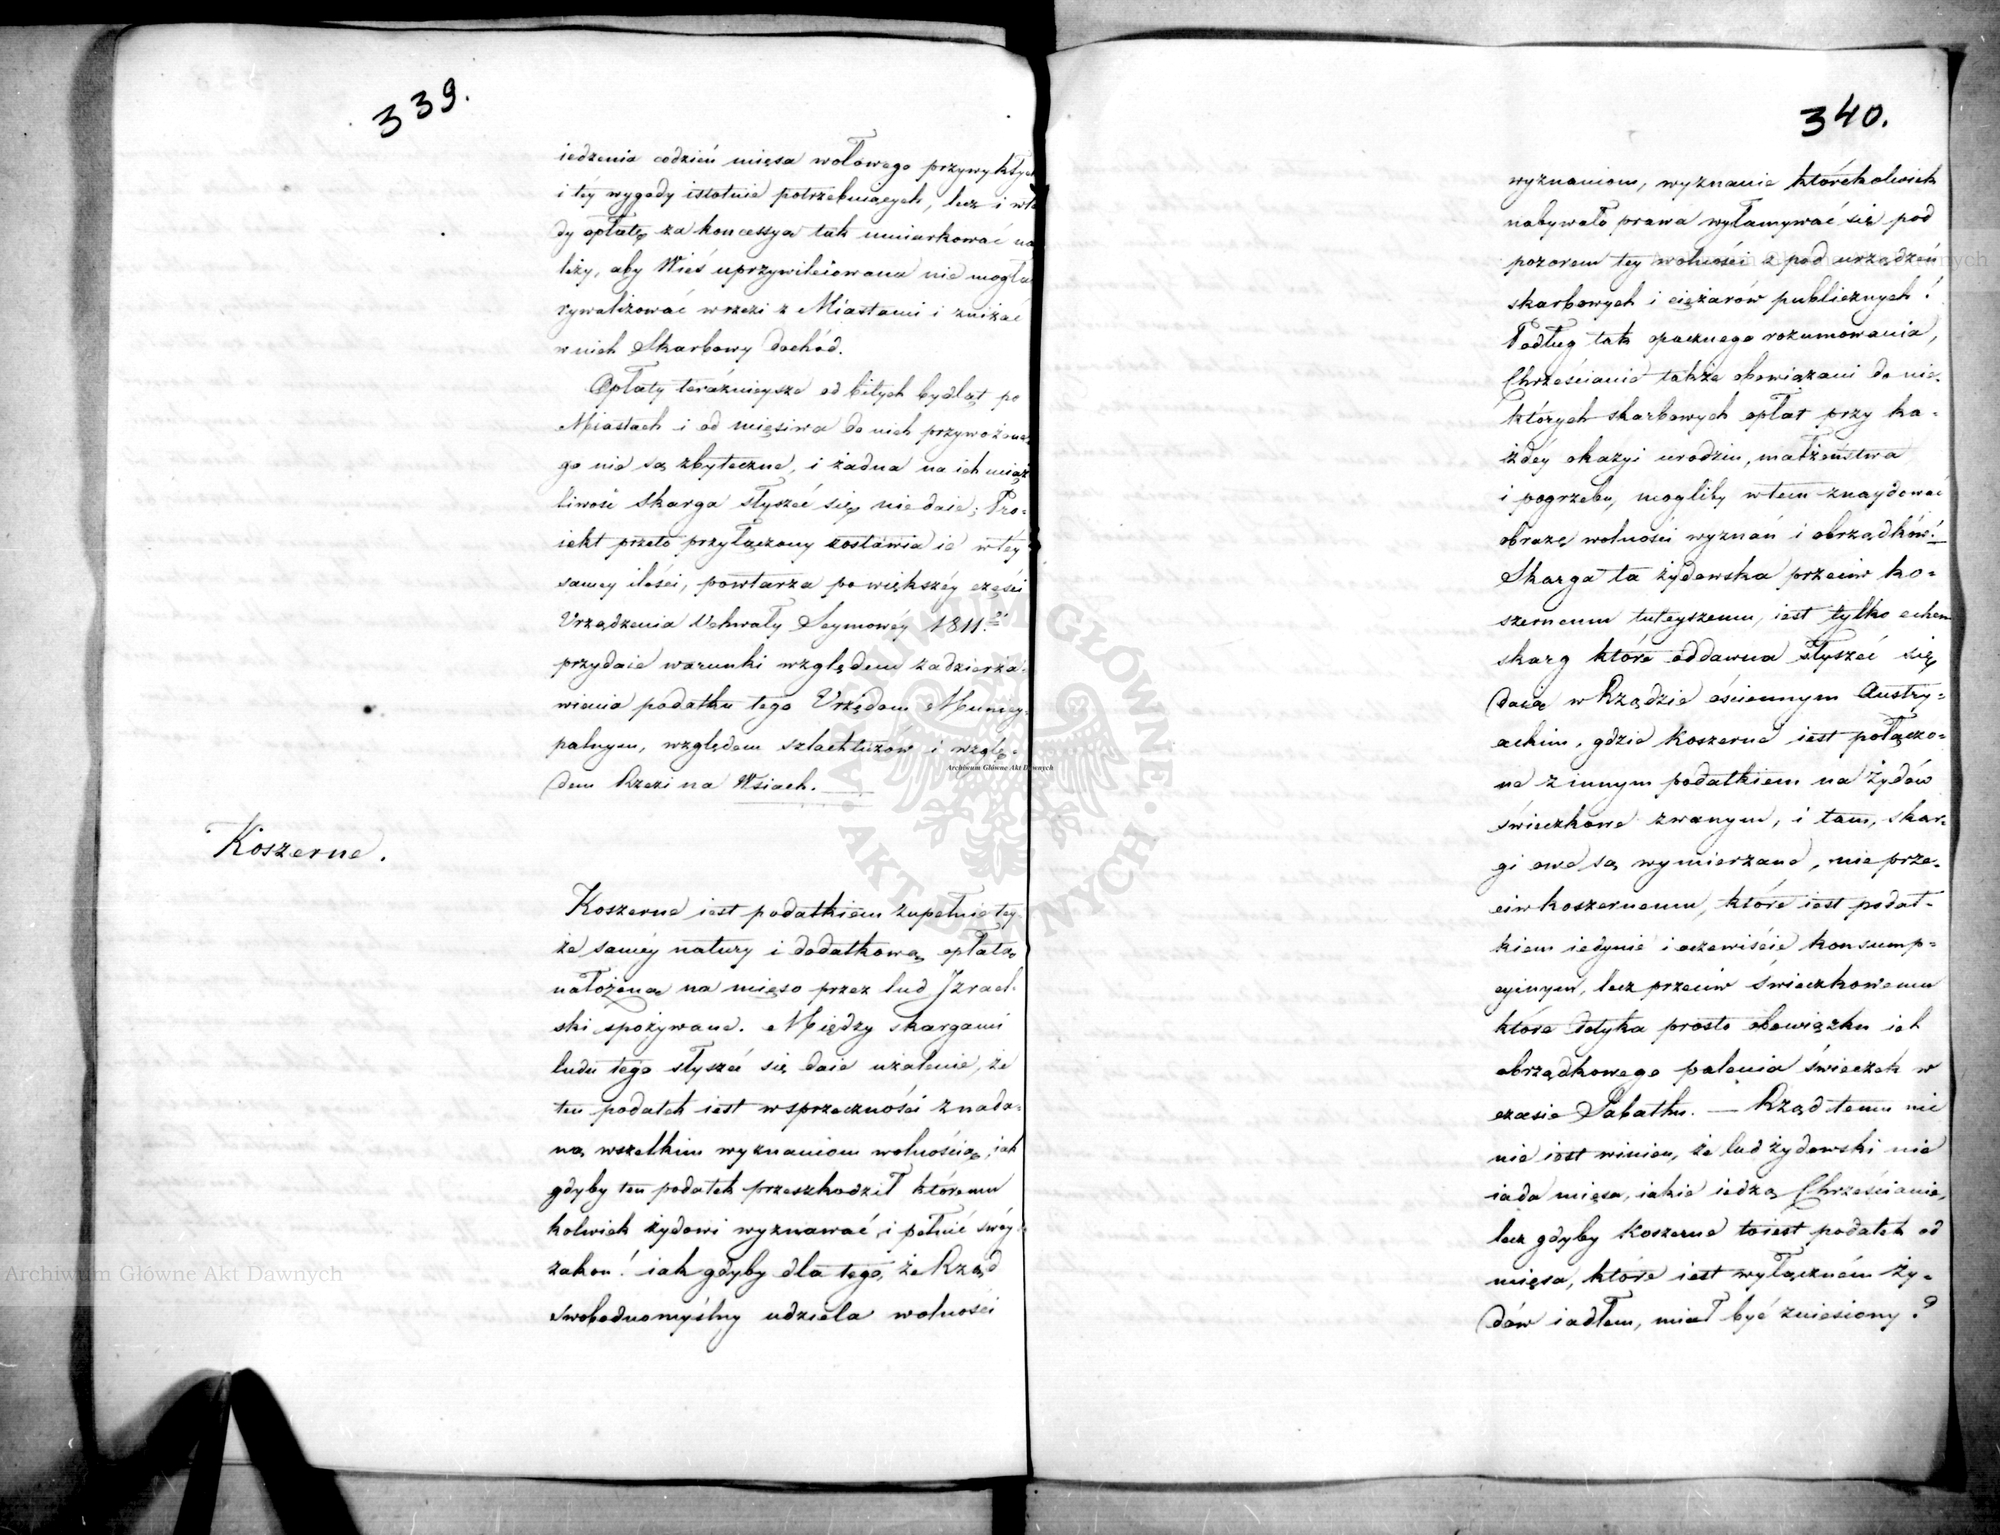 339.
iedzenia codzień mięsa wołowego przywykłych
i téy wygody istotnie potrzebuiących, lecz i wte
dy opłatę za koncessyą tak umiarkować na
leży, aby Wieś uprzywileiowana nie mogła
rywalizować w rzezi z Miastami i zniżać
w nich Skarbowy dochód.
Opłaty teraźnieysze od bitych bydląt po
Miastach i od mięsiwa do nich przywożone
go nie są zbyteczne, i żadna na ich uciąż
liwość skarga słyszeć się nie daie; Pro-
iekt przeto przyłączony zostawia ie w téy
saméy ilości, powtarza po większéy części
Urządzenia Uchwały Seymowéy 1811.
przydaie warunki względem zadzierża-
wiania podatku tego Urzędom Municy-
palnym, względem szlachtuzów i wzglę-
dem Rzezi na Wsiach.
Koszerne.
Koszerne iest podatkiem zupełnie tey-
że saméy natury i dodatkową opłatą
nałożoną na mięso przez lud Izrael-
ski spożywane. Między skargami
ludu tego słyszeć się daie użalenie, że
ten podatek iest w sprzeczności z nada-
ną wszelkim wyznaniom wolnością, iak
gdyby ten podatek przeszkodził któremu
kolwiek żydowi wyznawać i pełnić swóy
zakon! iak gdyby dla tego, że Rząd
swobodnomyślny udziela wolności
340.
wyznaniom, wyznanie którekolwiek
nabywało prawa wyłamywać się pod
pozorem tey wolności z pod urządzeń
skarbowych i ciężarów publicznych!
Podług tak opacznego rozumowania,
Chrześcianie także obowiązani do nie-
których skarbowych opłat przy ka-
żdéy okazyi urodzin, małżeństwa
i pogrzebu, mogliby w tem znaydować
obrazę wolności wyznań i obrządków!
Skarga ta żydowska przeciw ko-
szernemu tuteyszemu, iest tylko echem
skarg które oddawna słyszeć się
daią w Rządzie ościennym Austry-
ackim, gdzie koszerne iest połączo-
ne z innym podatkiem na Żydów
świeczkowe zwanym, i tam, skar-
gi owe są wymierzane, nie prze-
ciw koszernemu, które iest podat-
kiem iedynie i oczewiście konsump-
cyinym, lecz przeciw świeczkowemu
które dotyka prosto obowiązku ich
obrządkowego palenia świeczek w
czasie Sabathu. — Rząd temu nic
nie iest winien, że lud żydowski nie
iada mięsa, iakie iedzą Chrześcianie,
lecz gdyby koszerne to iest podatek od
mięsa, które iest wyłączném ży-
dów iadłem, miał być zniesiony?
Archiwum Główne Akt Dawnych
Archiwum Główne Akt Dawnych
ARCHIWUM GŁÓWNE AKT DAWNYCH